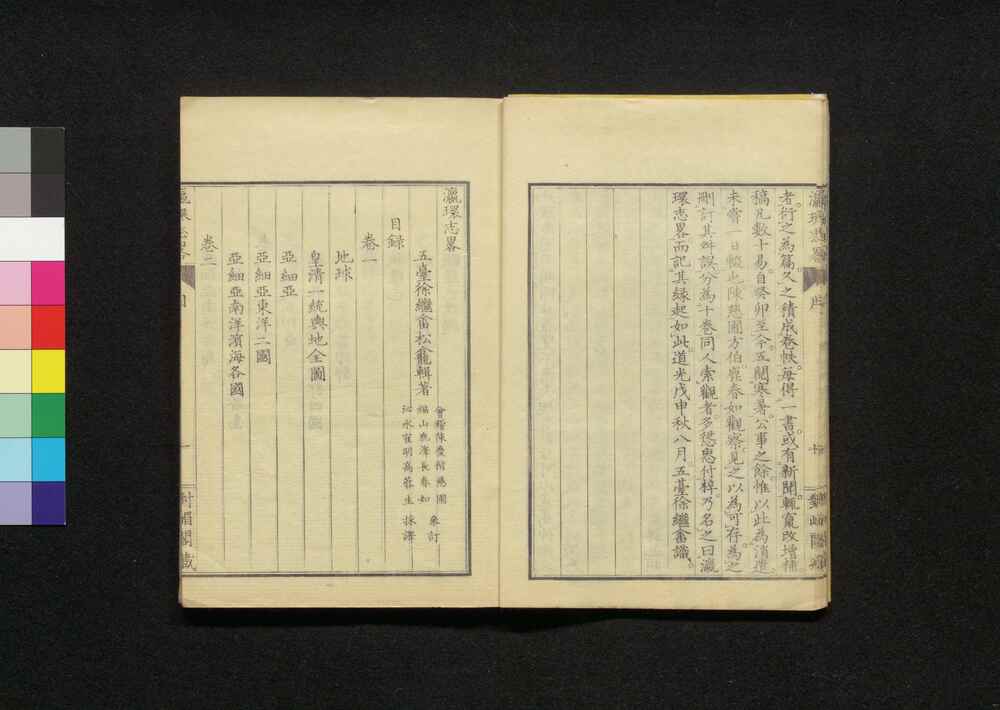 瀛環志畧
序
者衍之為篇久之積成卷帙每得一書或有新聞輒竄改增補
稿凡數十易自癸卯至今五閱寒暑公事之餘惟以此為消遣
未嘗一日輟也陳慈圃方伯鹿春如觀察見之以為可存為之
刪訂其舛誤分為十卷同人索觀者多慫恿付梓乃名之曰瀛
環志畧而記其緣起如此道光戊申秋八月五臺徐繼畬識
瀛環志畧
五臺徐繼畬松龕輯著
會稽陳慶偕慈圃
福山鹿澤長春如
參訂
沁水霍明高蓉生
採譯
目録
卷一
地球
皇清一統輿地全圖
亞細亞
亞細亞東洋二國
亞細亞南洋濱海各國
卷二
目
一
對嵋閣藏